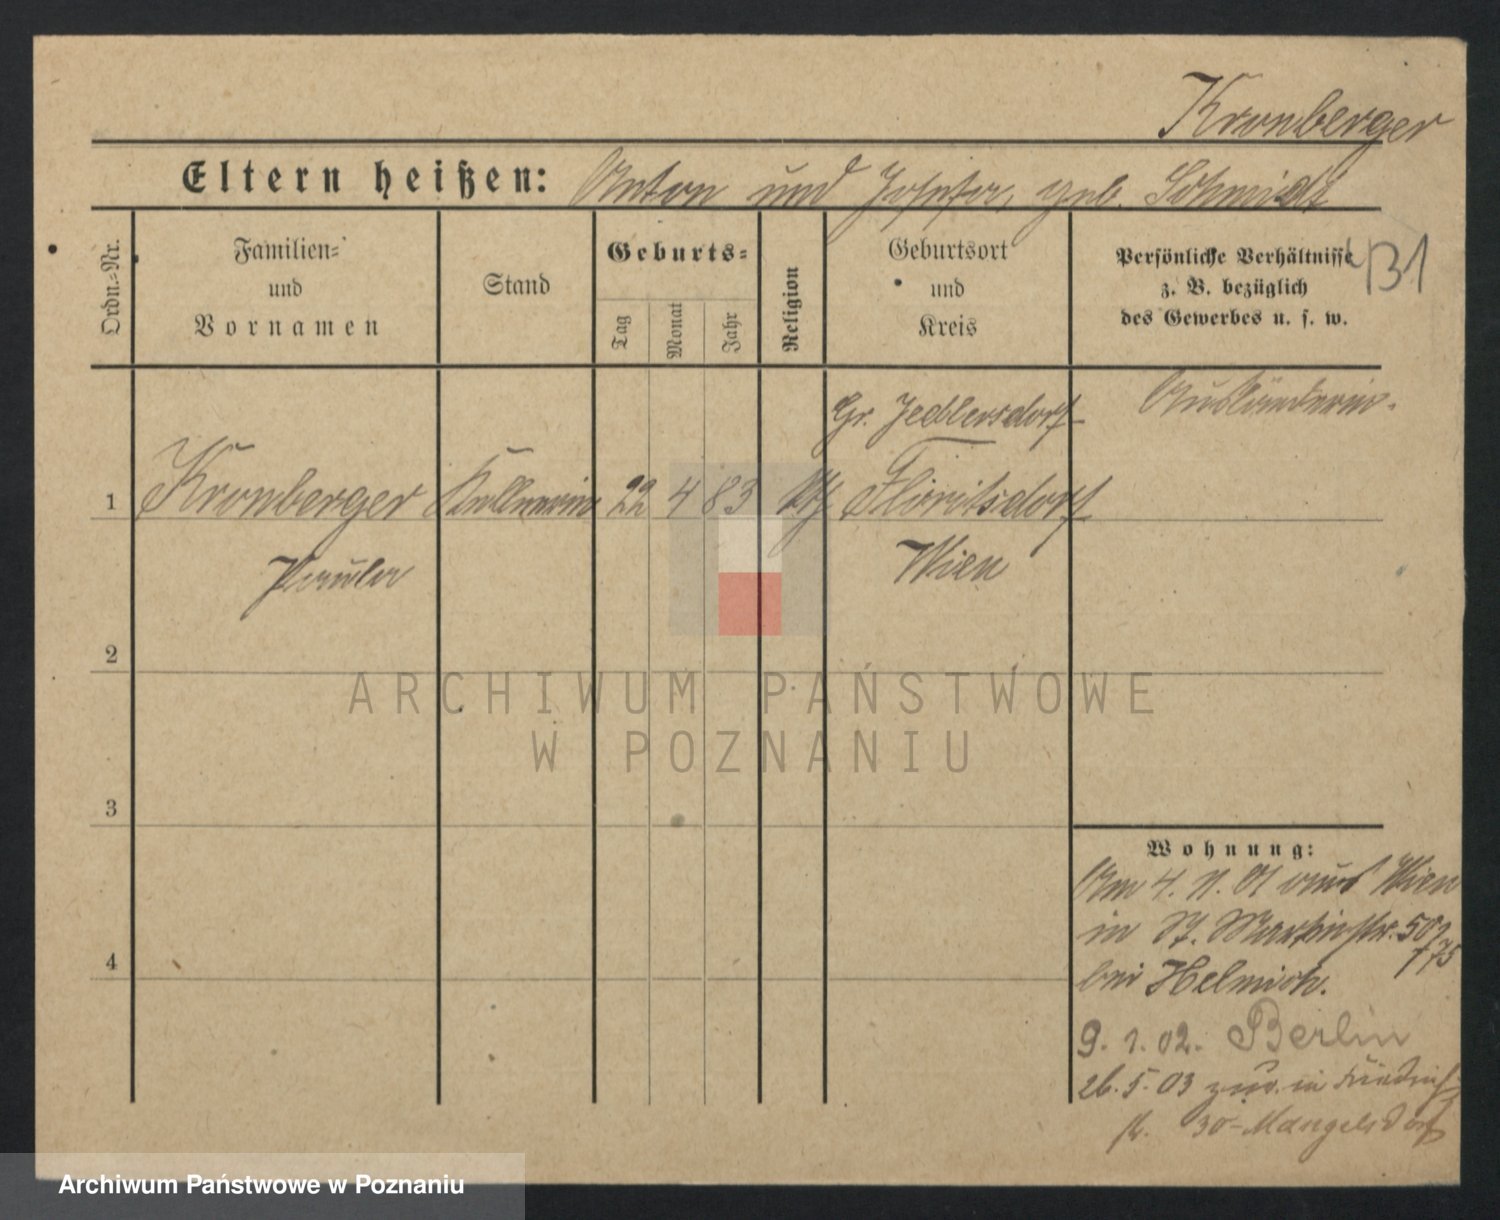 Kronberger
Eltern heißen: Anton und Josefa, geb. Schmidt
Ordn.-Nr.
Familien-
und
Vornamen
Stand
Geburts-
Tag
Monat
Jahr
Religion
Geburtsort
und
Kreis
Persönliche Verhältnisse
z. B. bezüglich
des Gewerbes u. s. w.
131
Gr. Jedlersdorf
Ausländerin.
1 Kronberger Kellnerin 22 4 83 kth Floritsdorf
Paula
Wien
2
3
4
ARCHIWUM PAŃSTWOWE
W POZNANIU
Wohnung:
Am 4. 11. 01 aus Wien
in St. Martinstr. 50
bei Helmich.
9. 1. 02. Berlin
26. 5. 03 zur. in Friedrich
str. 30 - Mangelsdorf
Archiwum Państwowe w Poznaniu